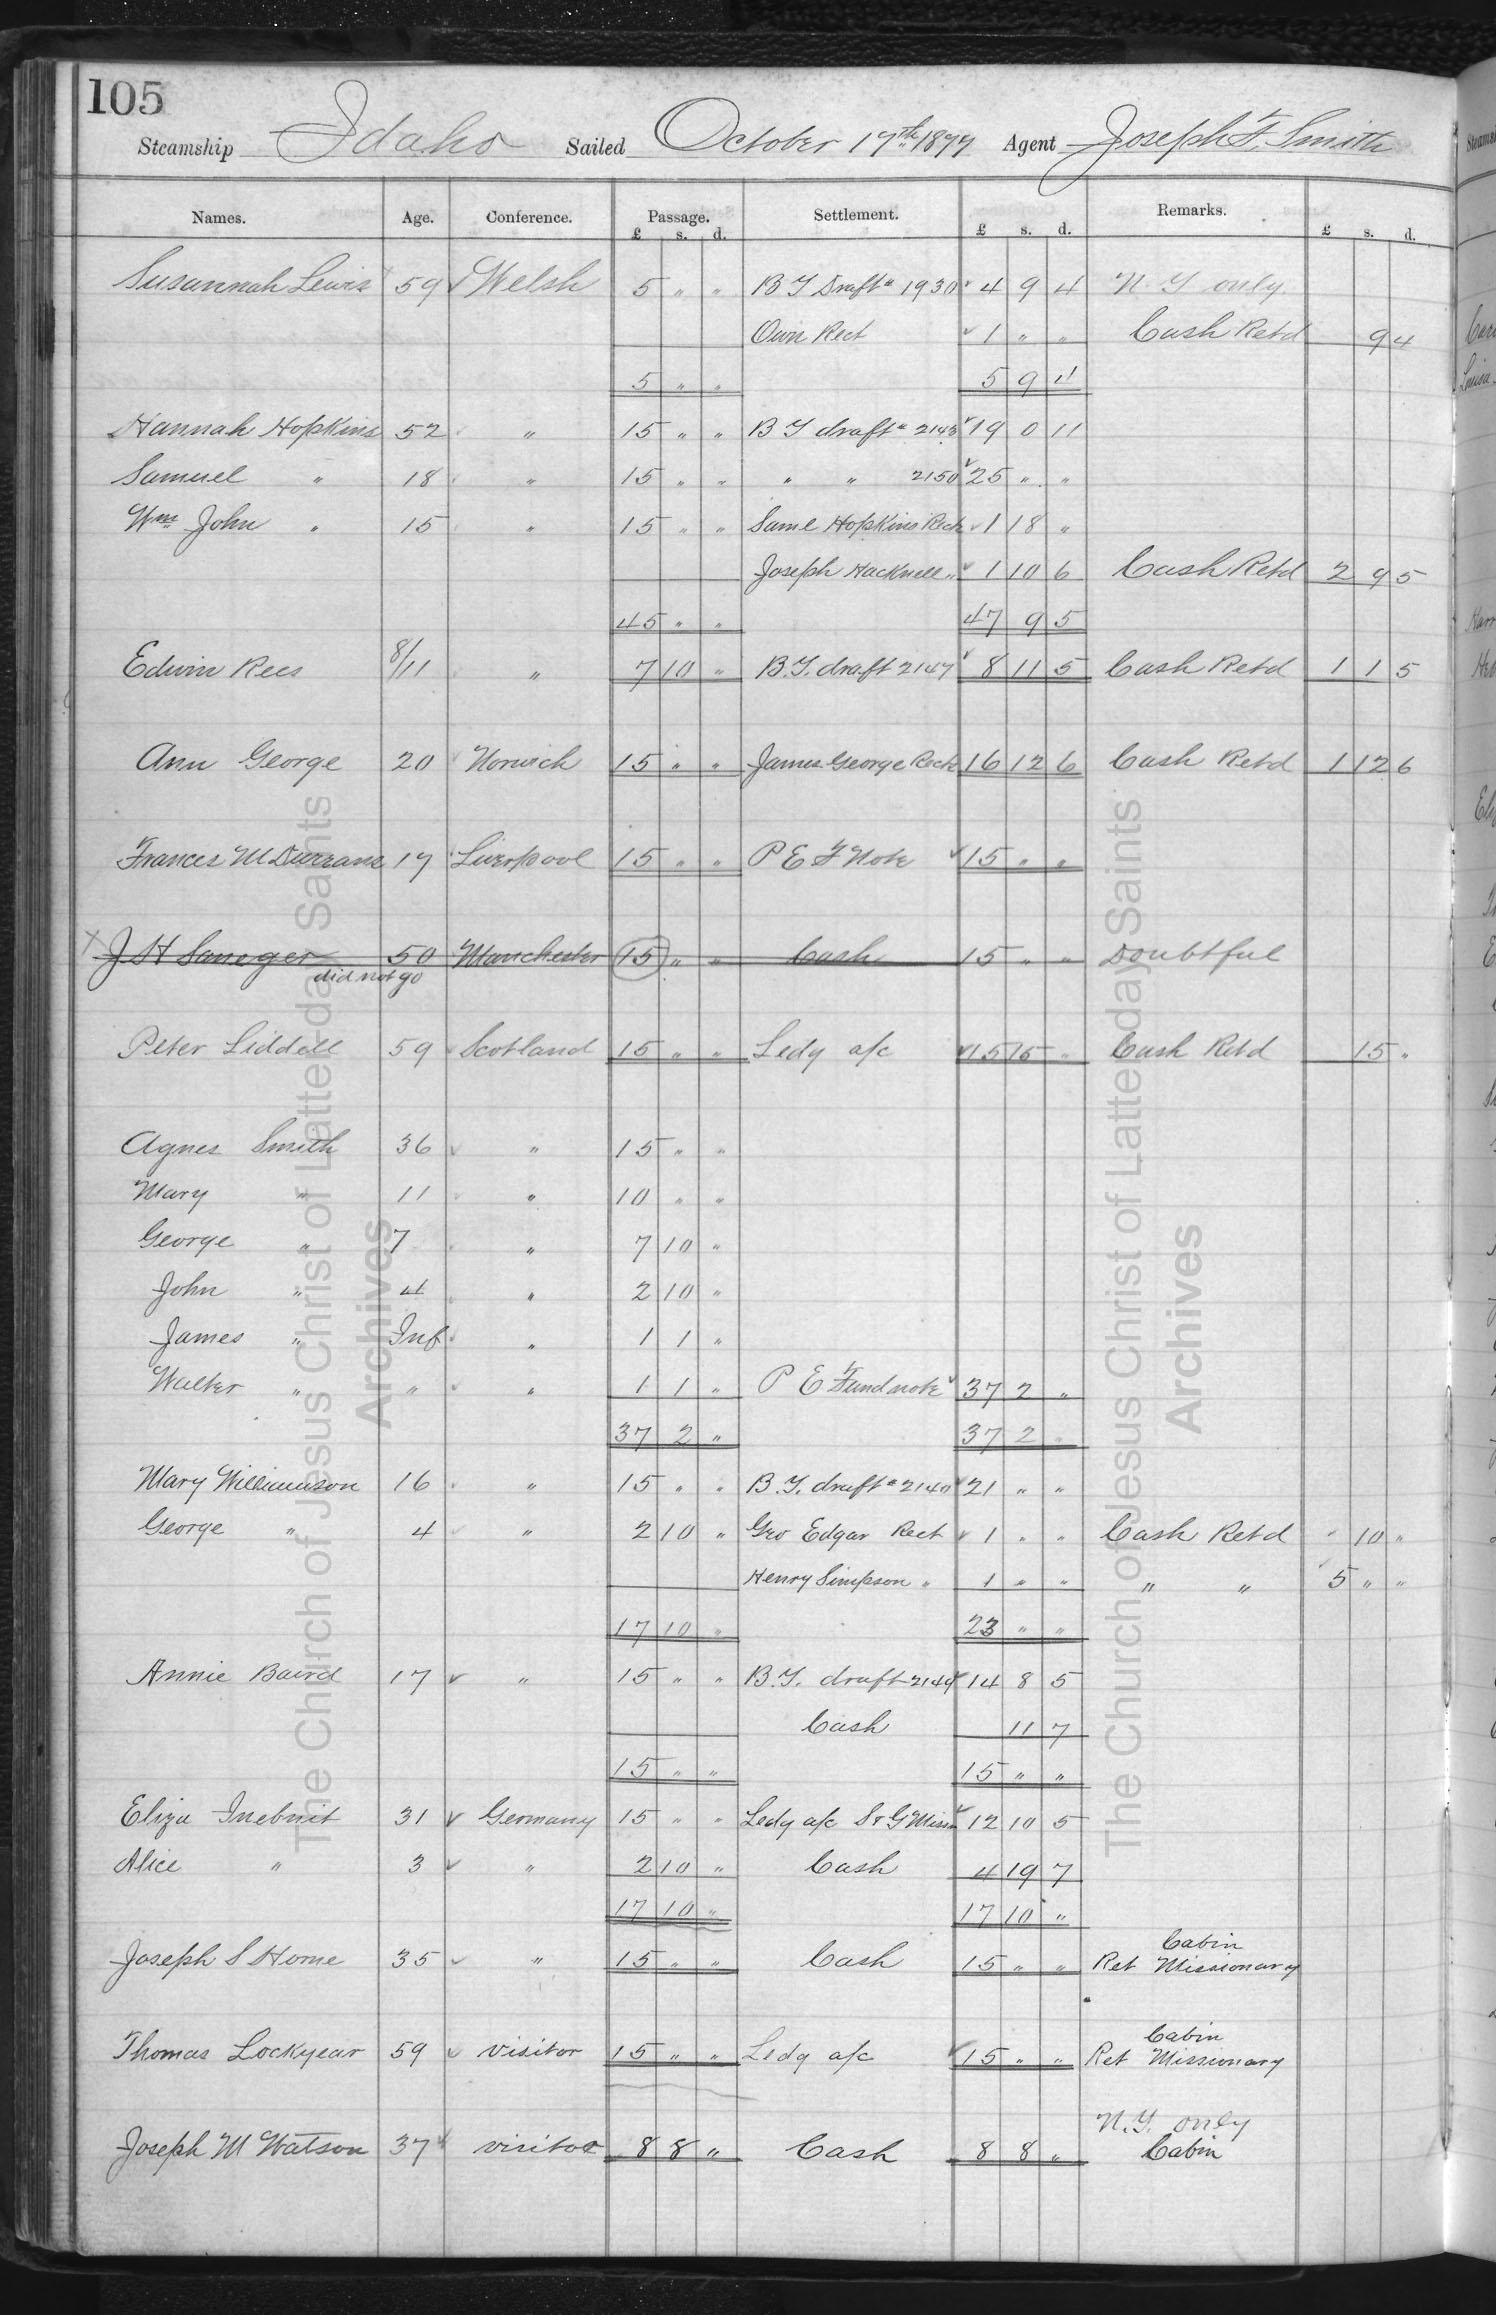 105
Steamship Idaho Sailed October 17th 1877 Agent Joseph F. Smith
Names. Age. Conference. Passage. Settlement. Remarks.
£ s. d. £ s. d. £ s. d.
Susannah Lewis 59 Welsh 5 " " B Y Draft # 1930 4 9 4 N. Y only
Own Rect 1 " " Cash Retd 9 4
5 " " 5 9 4
Hannah Hopkins 52 " 15 " " B Y draft # 2143 19 0 11
Samuel " 18 " 15 " " " " 2150 25 " "
Wm John " 15 " 15 " " Saml Hopkins Rect 1 18 "
Joseph Hacknell " 1 10 6 Cash Retd 2 9 5
45 " " 47 9 5
Edwin Rees 8/11 " 7 10 " B.Y. draft 2147 8 11 5 Cash Retd 1 1 5
Ann George 20 Norwich 15 " " James George Rect 16 12 6 Cash Retd 1 12 6
Frances M Durrans 17 Liverpool 15 " " P E F Note 15 " "
X J H 50 Manchester 15 " " Cash 15 " " Doubtful
did not go
Peter Liddell 59 Scotland 15 " " Ledg a/c 15 15 " Cash Retd 15 "
Agnes Smith 36 " 15 " "
Mary " 11 " 10 " "
George " 7 " 7 10 "
John " 4 " 2 10 "
James " Inf " 1 1 "
Walter " " " 1 1 " P E Fund note 37 2 "
37 2 " 37 2 "
Mary Williamson 16 " 15 " " B.Y. draft # 2140 21 " "
George " 4 " 2 10 " Geo Edgar Rect 1 " " Cash Retd 10 "
Henry Simpson " 1 " " " " 5 " "
17 10 " 23 " "
Annie Baird 17 " 15 " " B.Y. draft 2149 14 8 5
Cash 11 7
15 " " 15 " "
Eliza Inebnit 31 Germany 15 " " Ledg a/c S & G Missn 12 10 5
Alice " 3 " 2 10 " Cash 4 19 7
17 10 " 17 10 "
Cabin
Joseph S Horne 35 " 15 " " Cash 15 " " Ret Missionary
Cabin
Thomas Lockyear 59 visitor 15 " " Ledg a/c 15 " " Ret Missionary
N.Y. only
Joseph M Watson 37 visitor 8 8 " Cash 8 8 " Cabin
The Church of Jesus Christ of Latter-day Saints
Archives
The Church of Jesus Christ of Latter-day Saints
Archives